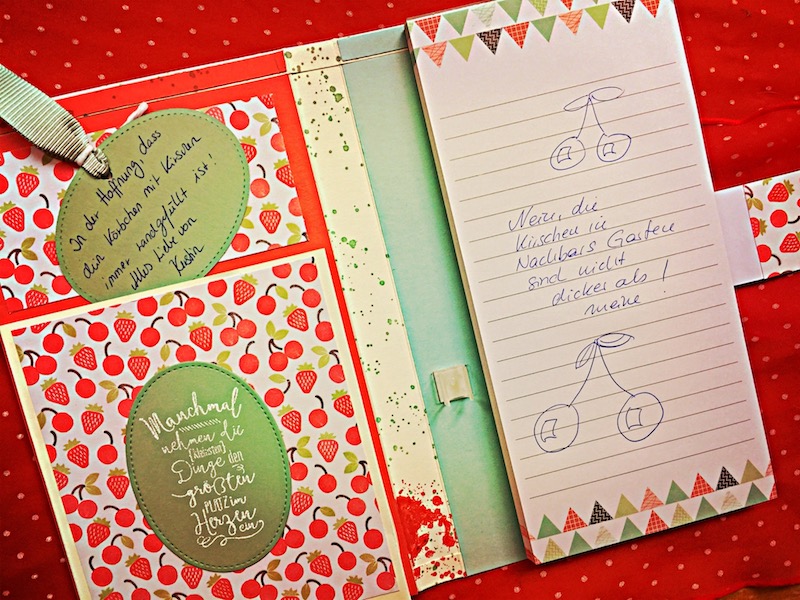 In der Hoffnung, dass
dein Körbchen mit Kirschen
immer randgefüllt ist!
Alles Liebe von
Kristin
Manchmal
nehmen die
(kleinsten)
Dinge den
größten
PLATZ im
Herzen
ein
Nein, die
Kirschen in
Nachbars Garten
sind nicht
dicker als
meine!